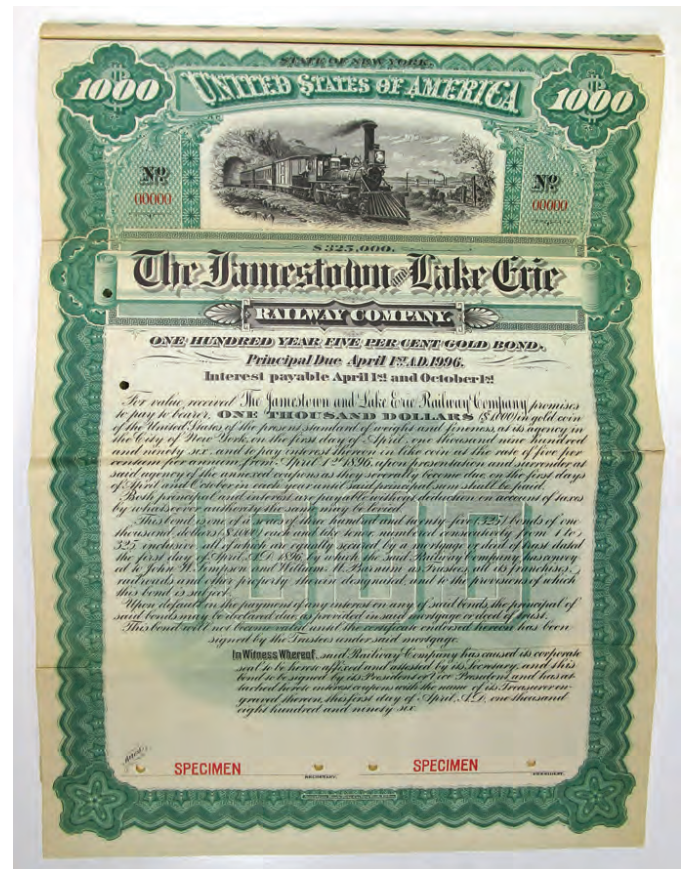 STATE OF NEW YORK.
1000 UNITED STATES OF AMERICA 1000
No No
00000 00000
$325,000.
The Jamestown and Lake Erie
RAILWAY COMPANY.
ONE HUNDRED YEAR FIVE PER CENT GOLD BOND.
Principal Due April 1st A.D. 1996.
Interest payable April 1st and October 1st
For value received The Jamestown and Lake Erie Railway Company promises
to pay to bearer, ONE THOUSAND DOLLARS ($1,000) in gold coin
of the United States of the present standard of weight and fineness, at its agency in
the City of New York, on the first day of April, one thousand nine hundred
and ninety six, and to pay interest thereon in like coin at the rate of five per
centum per annum, from April 1st 1896, upon presentation and surrender at
said agency of the annexed coupons as they severally become due on the first days
of April and October in each year until said principal sum shall be paid.
Both principal and interest are payable without deduction on account of taxes
by whatsoever authority the same may be levied.
This bond is one of a series of three hundred and twenty-five (325) bonds of one
thousand dollars ($1,000) each and like tenor, numbered consecutively from 1 to
325 inclusive, all of which are equally secured by a mortgage or deed of trust dated
the first day of April, A.D. 1896, by which the said Railway Company has convey
ed to John W. Simpson and William M. Barnum as Trustees, all its franchises,
railroads and other property therein designated, and to the provisions of which
this bond is subject.
Upon default in the payment of any interest on any of said bonds the principal of
said bonds may be declared due, as provided in said mortgage or deed of trust.
This bond will not become valid until the certificate endorsed hereon has been
signed by the Trustees under said mortgage.
In Witness Whereof, said Railway Company has caused its corporate
seal to be hereto affixed and attested by its Secretary, and this
bond to be signed by its President or Vice President and has at
tached hereto interest coupons with the name of its Treasurer en
graved thereon, this first day of April, A.D. one thousand
eight hundred and ninety six.
Attest:
SPECIMEN SPECIMEN
SECRETARY. PRESIDENT.